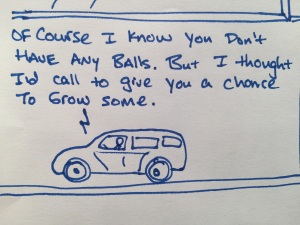 Of Course I Know you Don't
Have Any Balls. But I thought
I'd call to give you a chance
To Grow some.